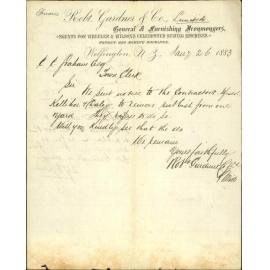 Robt. Gardner & Co.,
General & Furnishing Ironmongers,
AGENTS FOR WHEELER & WILSON'S CELEBRATED SEWING MACHINES,
Wellington, N.Z. Jany 26 1883
C. C. Graham Esq
Town Clerk
Sir
We sent notice to the Contractors Messrs
to remove from our
yard They refuse to do so
Will you Kindly see that they do
We remain
Yours faithfully
Robt Gardner & Co